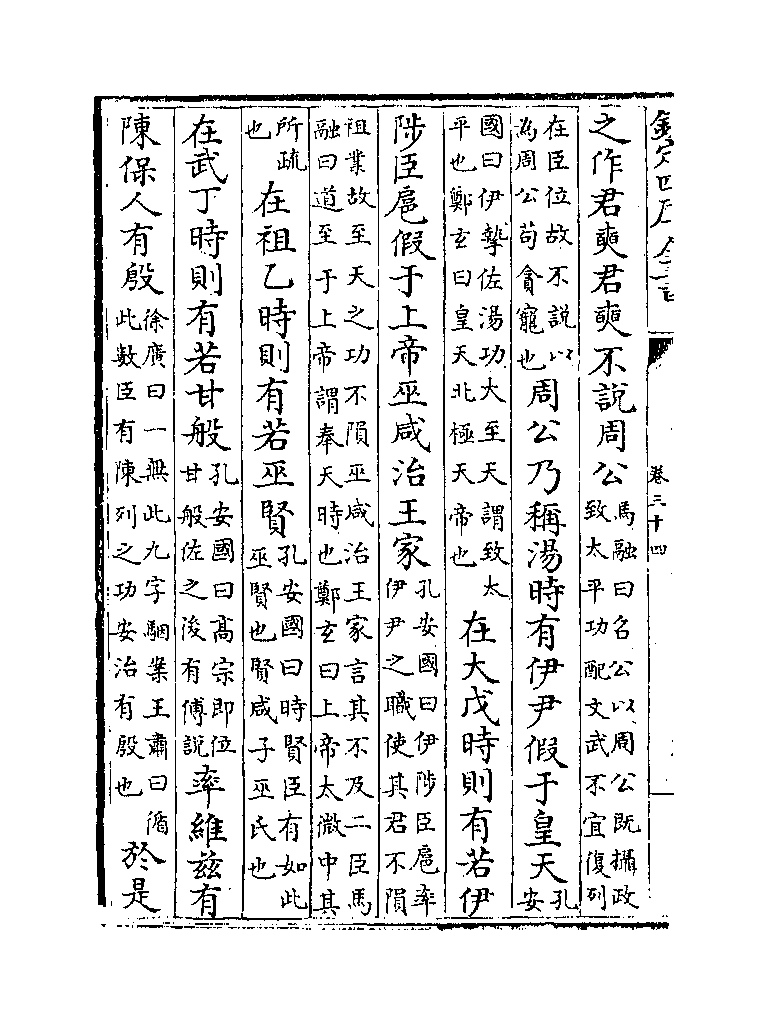 欽定四庫全書
卷三十四
之作君奭君奭不說周公馬融曰名公以周公既攝政致太平功配文武不宜復列
在臣位故不說以為周公苟貪寵也周公乃稱湯時有伊尹假于皇天孔安
國曰伊摯佐湯功大至天謂致太平也鄭玄曰皇天北極天帝也在大戊時則有若伊
陟臣扈假于上帝巫咸治王家孔安國曰伊陟臣扈率伊尹之職使其君不隕
祖業故至天之功不隕巫咸治王家言其不及二臣馬融曰道至于上帝謂奉天時也鄭玄曰上帝太微中其
所疏也在祖乙時則有若巫賢孔安國曰時賢臣有如此巫賢也賢咸子巫氏也
在武丁時則有若甘般孔安國曰高宗即位甘般佐之後有傅說率維茲有
陳保人有殷徐廣曰一無此九字駰案王肅曰循此數臣有陳列之功安治有殷也於是